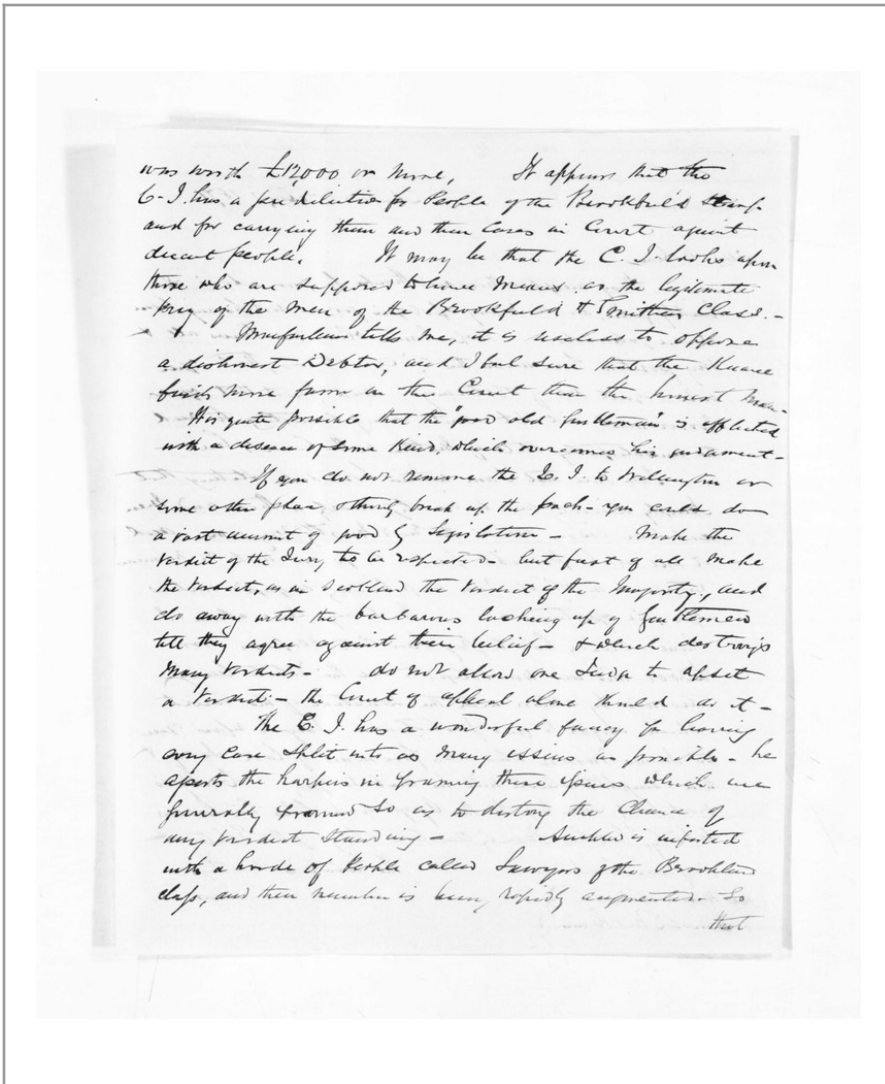 was worth £12,000 or more, It appears that the
C-J. has a predilection for People of the Brookfield Stamp
and for carrying them and their Cases in Court against
decent people. It may be that the C. J. looks upon
those who are supposed to have Means as the legitimate
prey of the Men of the Brookfield & Smithers Class. -
tells me, it is useless to oppose
a dishonest Debtor, and I feel sure that the Knave
finds more favor in the Court than the honest Man -
It is quite possible that the "poor old Gentleman" is afflicted
with a disease of some Kind, which overcomes his judgment -
If you do not remove the C. J. to Wellington or
some other place & break up the pack - you could do
a vast amount of good by Legislation - Make the
verdict of the Jury to be respected - but first of all make
the Verdict, as in Scotland the Verdict of the Majority, and
do away with the barbarous locking up of Gentlemen
till they agree against their belief - & which destroys
Many Verdicts - do not allow one Judge to upset
a Verdict - the Court of Appeal alone should do it -
The C. J. has a wonderful fancy for having
every case Split into as Many issues as possible - he
the in framing these issues which are
generally framed so as to destroy the Chance of
any verdict standing - is infested
with a horde of People called Lawyers of the
class, and their number is being rapidly augmented. So
that